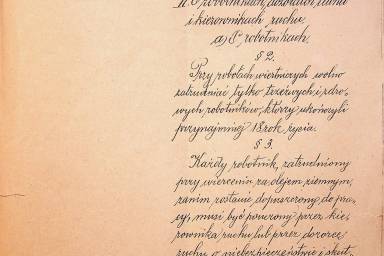 II. O robotnikach, dozorcach, ruchu
i kierownikach ruchu.
a) O robotnikach.
§ 2.
Przy robotach wiertniczych wolno
zatrudniać tylko trzeźwych i zdro-
wych robotników, którzy ukończyli
przynajmniej 18 rok życia.
§ 3.
Każdy robotnik, zatrudniony
przy wierceniu za olejem ziemnym,
zanim zostanie dopuszczony do pra-
cy, musi być pouczony przez kie-
rownika ruchu lub przez dozorcę
ruchu o niebezpieczeństwie i skut-